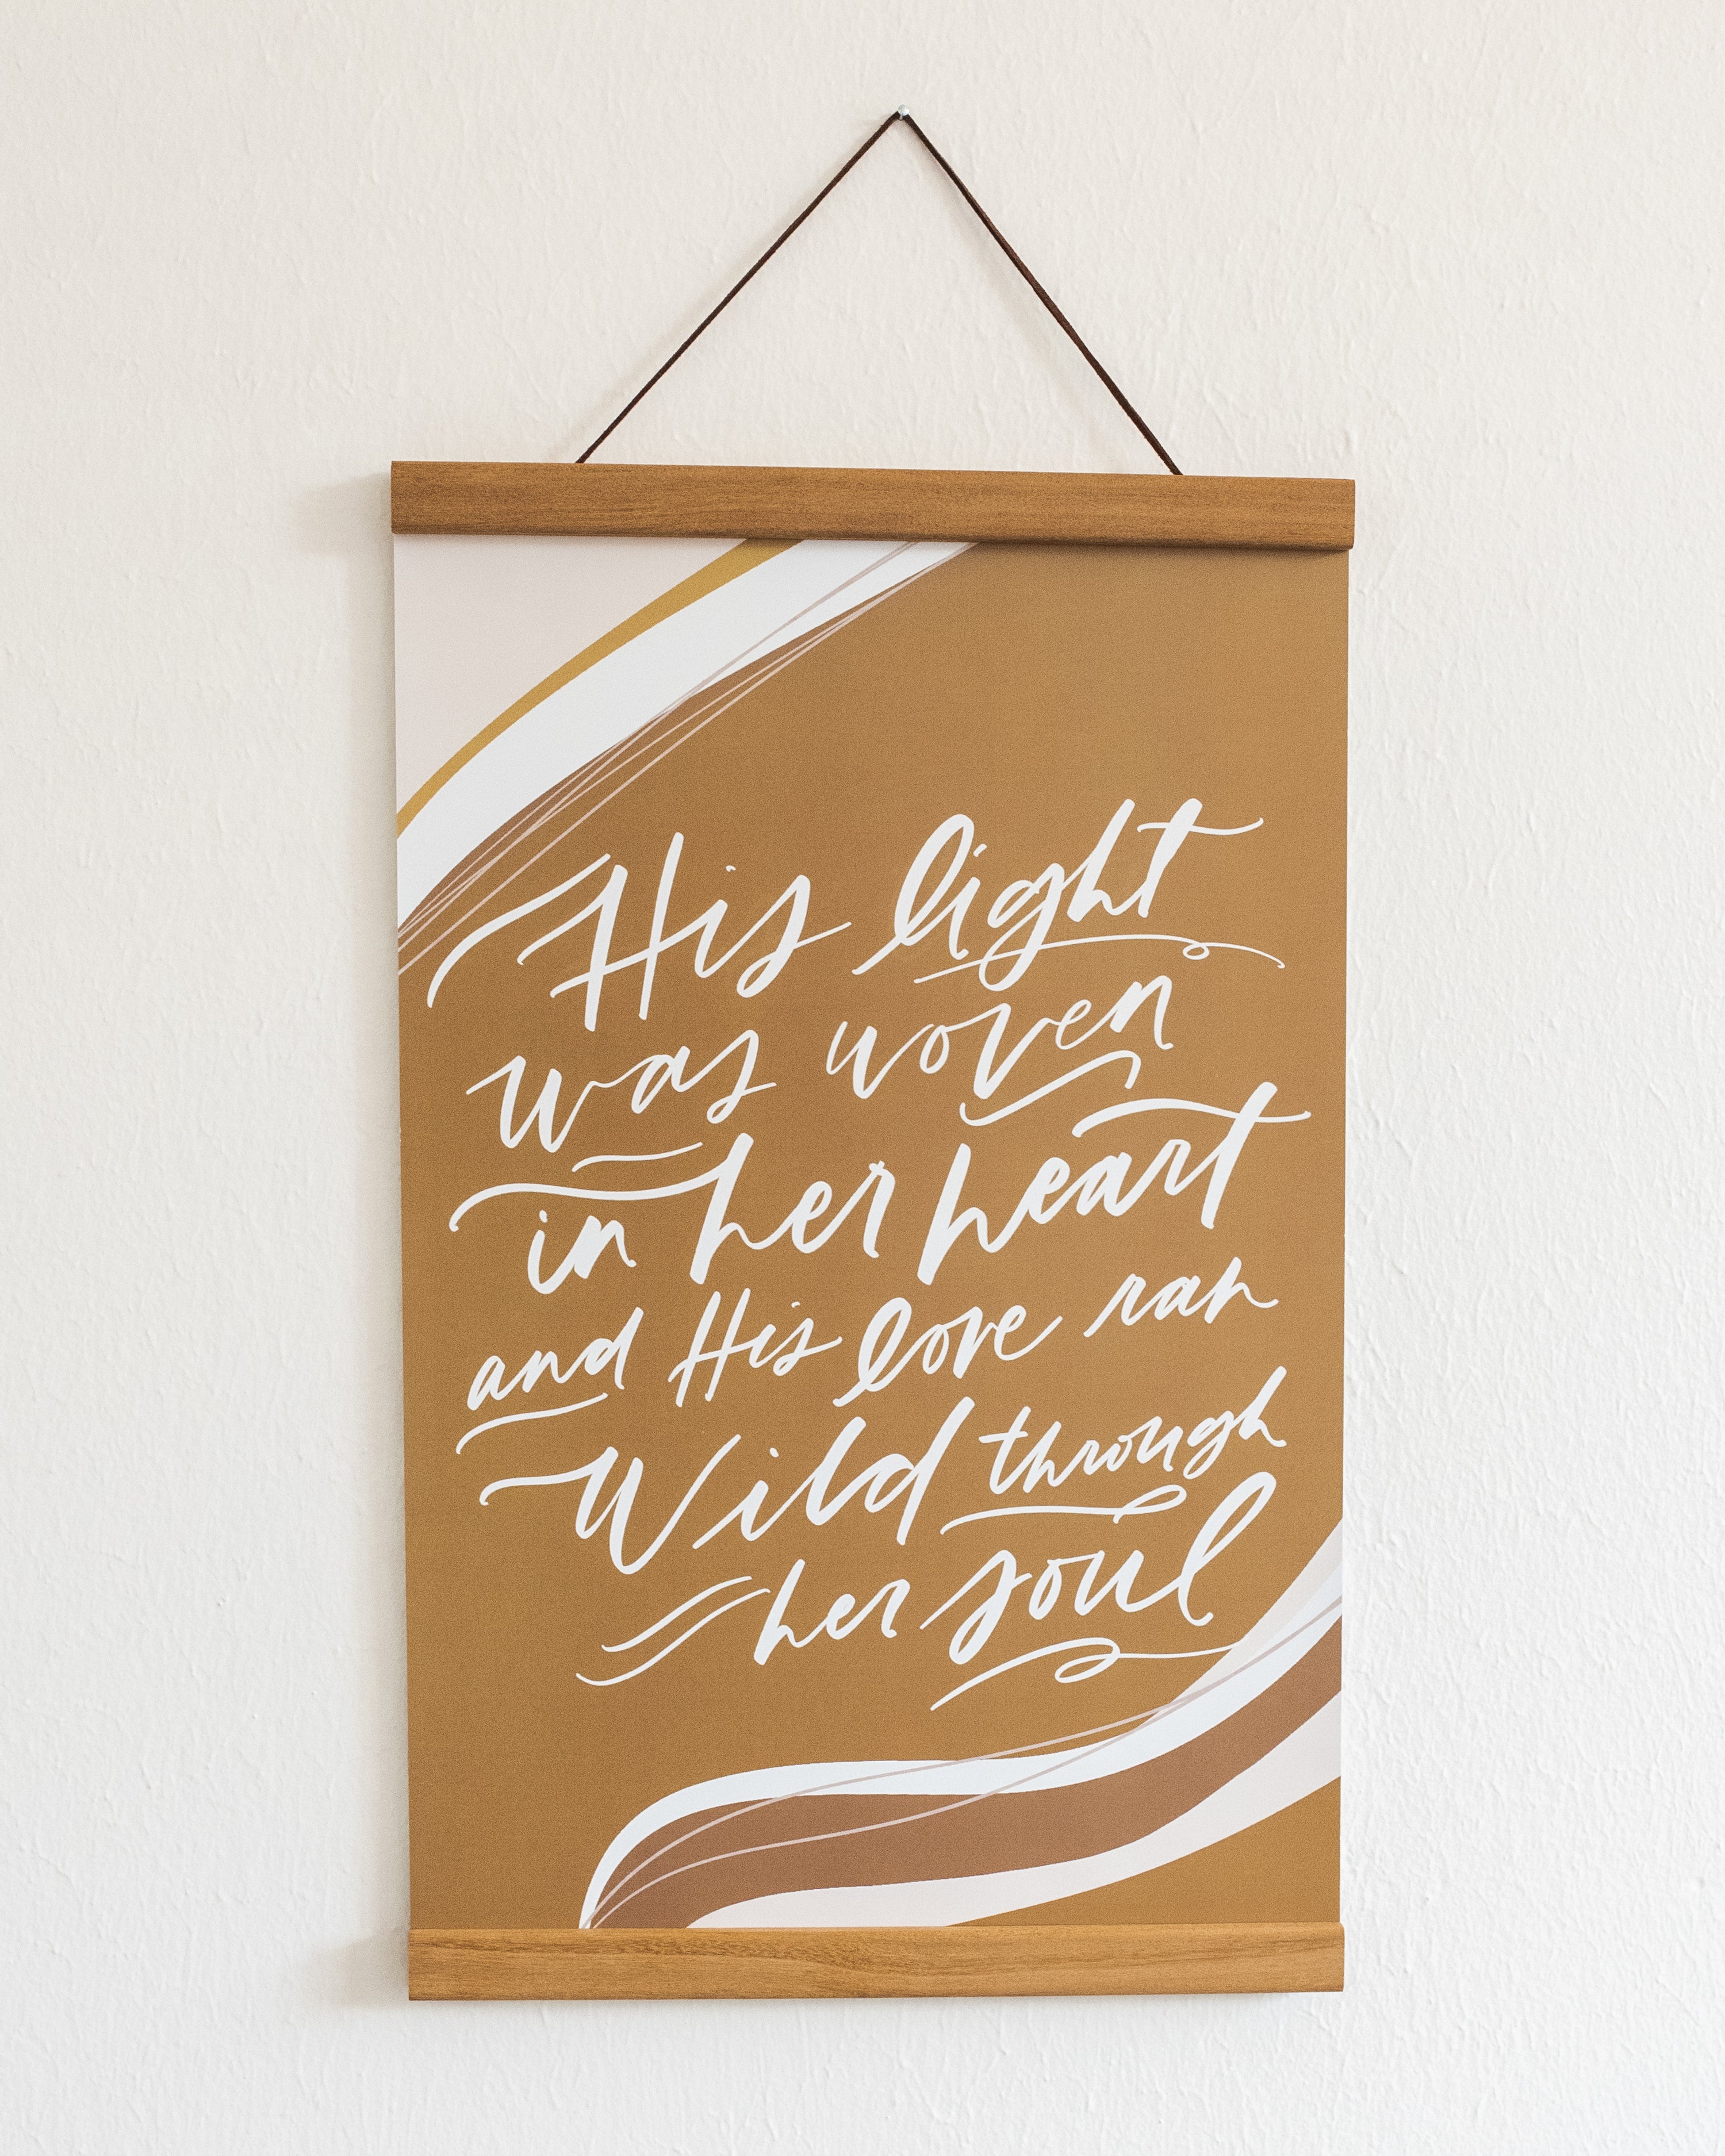 His light
was woven
in her heart
and His love ran
Wild through
her soul